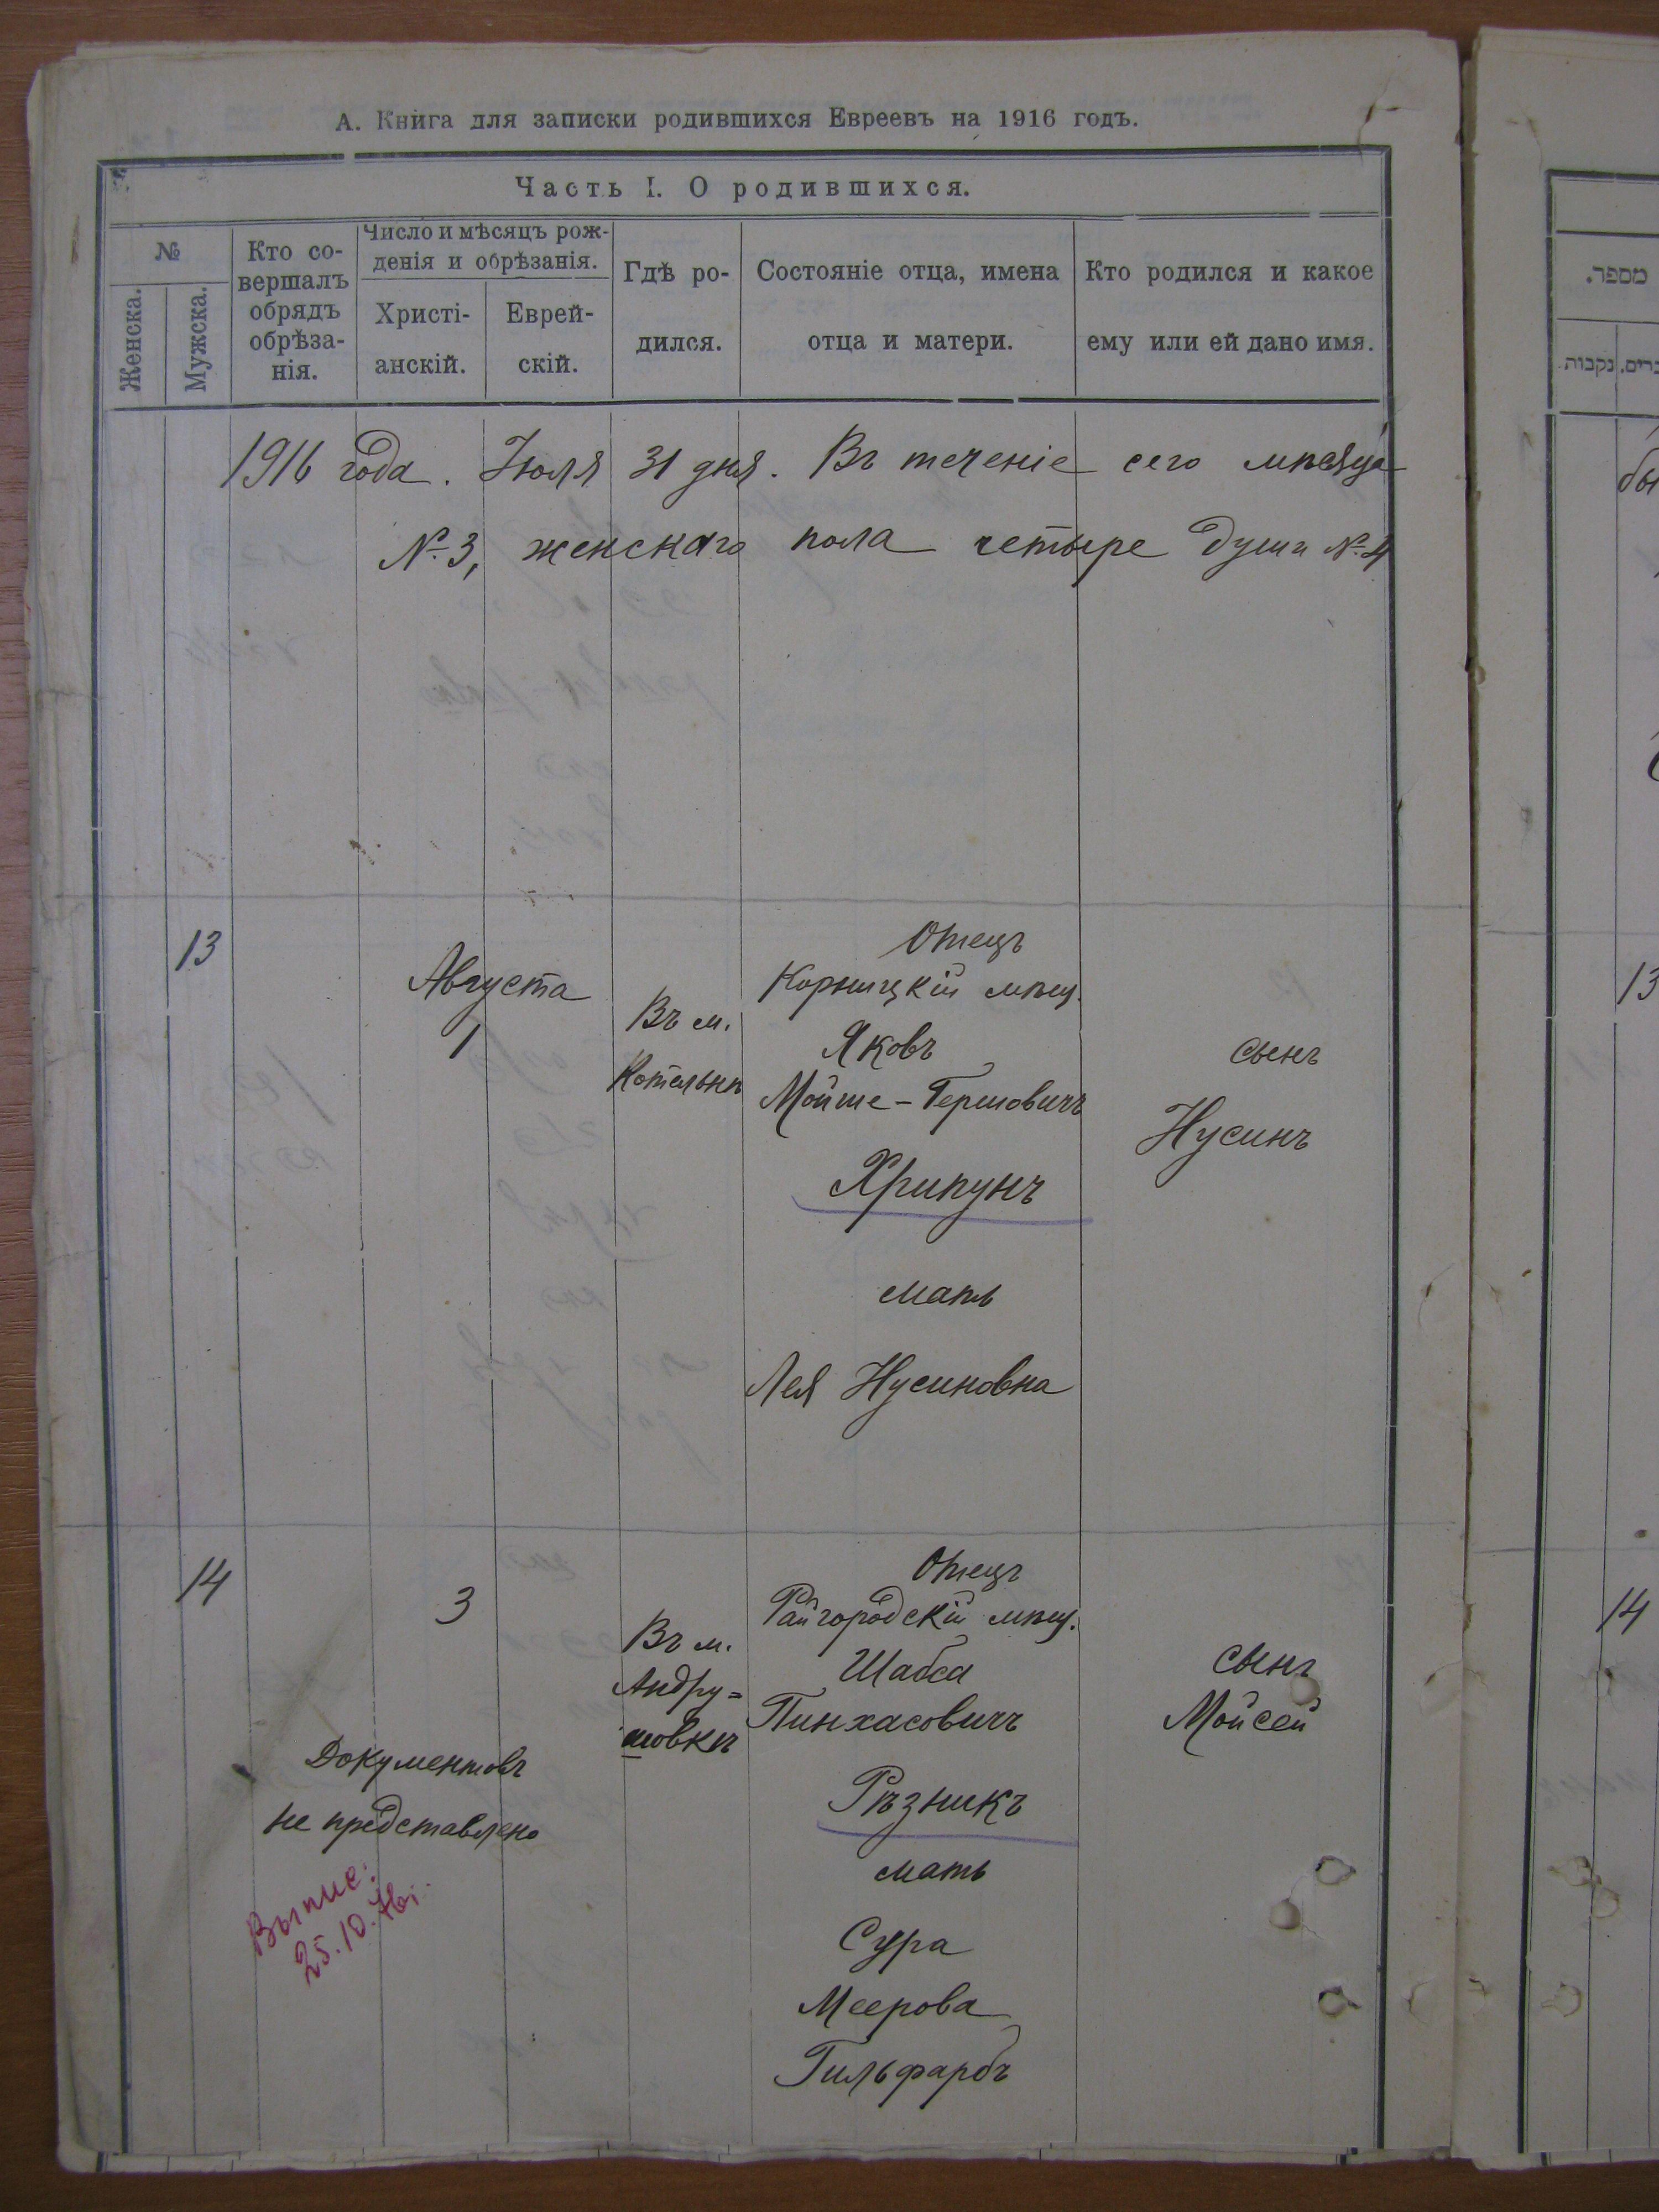 А. Книга для записки родившихся Евреевъ на 1916 годъ.
Часть I. О родившихся.
№
Женска.
Мужска.
Кто со-
вершалъ
обрядъ
обрѣза-
нія.
Число и мѣсяцъ рож-
денія и обрѣзанія.
Христі-
анскій.
Еврей-
скій.
Гдѣ ро-
дился.
Состояніе отца, имена
отца и матери.
Кто родился и какое
ему или ей дано имя.
1916 года. Іюля 31 дня. Въ теченіе сего мѣсяца
№ 3, женскаго пола четыре души № 4
13
Августа
1
Въ м.
Котельнѣ
Отецъ
мѣщ.
Яковъ
Мойше-Гершовичъ
Хрипунъ
мать
Лея Нусиновна
сынъ
Нусинъ
14
3
Документовъ
не представлено
Выпис.
25.10.
Въ м.
Андру=
шовкѣ
Отецъ
Райгородскій мѣщ.
Шабса
Пинхасовичъ
Рѣзникъ
мать
Сура
Меерова
Гильфарбъ
сынъ
Мойсей
מספר.
נקבות
бы
13
14